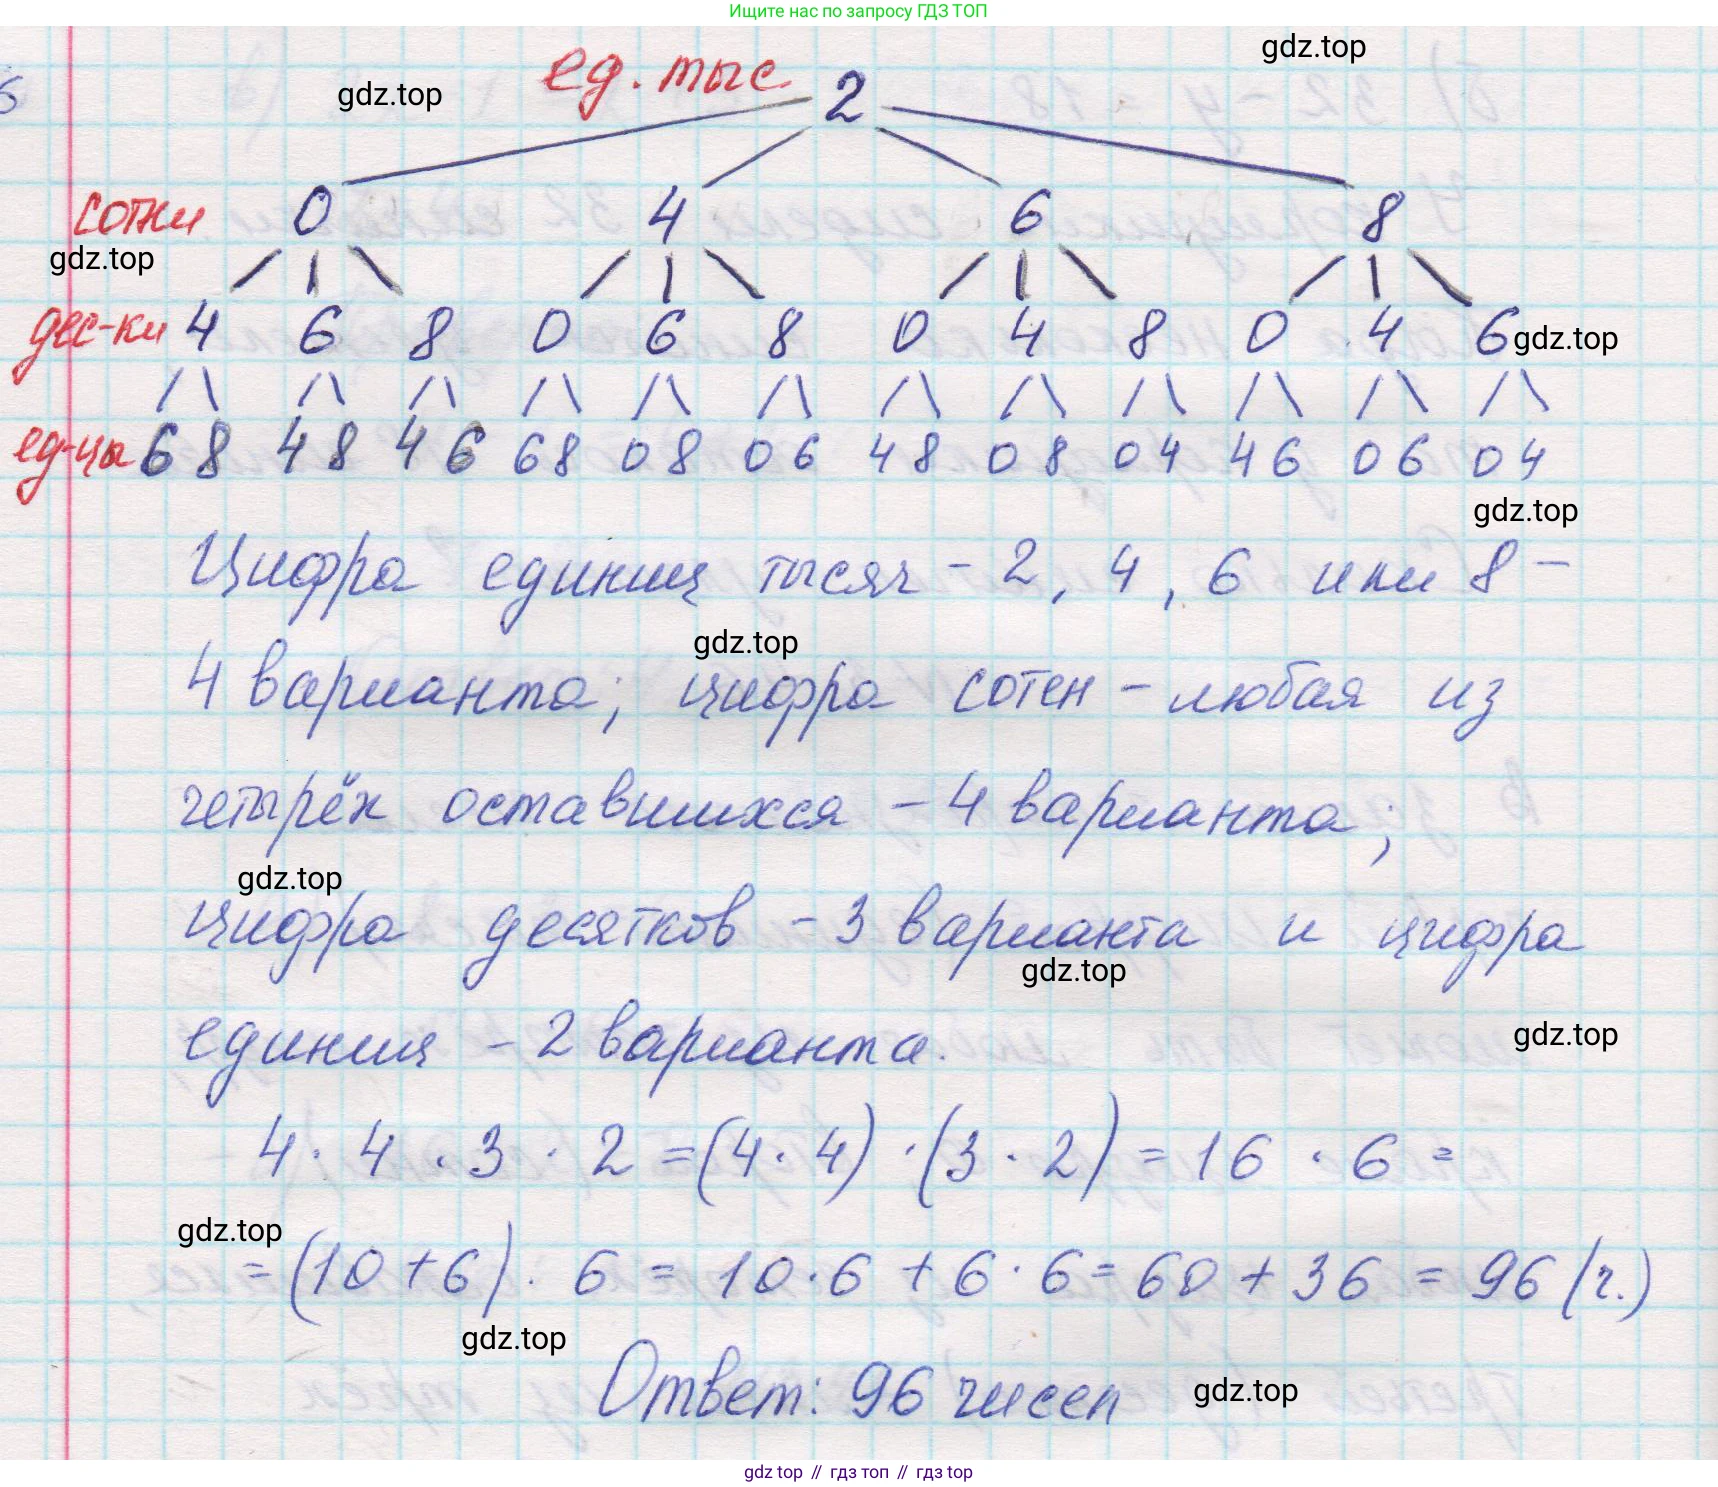 Ищите нас по запросу ГДЗ ТОП
gdz.top
ед. тыс. 2
gdz.top
сотни 0 4 6 8
gdz.top
дес-ки 4 6 8 0 6 8 0 4 8 0 4 6
gdz.top
ед-цы 6 8 4 8 4 6 6 8 0 8 0 6 4 8 0 8 0 4 4 6 0 6 0 4
gdz.top
Цифра единиц тысяч - 2, 4, 6 или 8 -
gdz.top
4 варианта; цифра сотен - любая из
четырёх оставшихся - 4 варианта;
gdz.top
цифра десятков - 3 варианта и цифра
gdz.top
единиц - 2 варианта.
gdz.top
4 · 4 · 3 · 2 = (4 · 4) · (3 · 2) = 16 · 6 =
gdz.top
= (10 + 6) · 6 = 10 · 6 + 6 · 6 = 60 + 36 = 96 (ч.)
gdz.top
Ответ: 96 чисел
gdz.top
gdz top // гдз топ // gdz.top